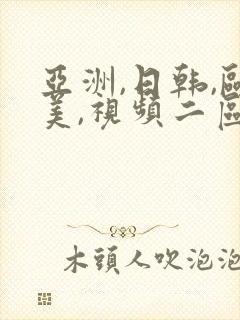 亞洲,日韩,區
美,視頻二區
木頭人吹泡泡